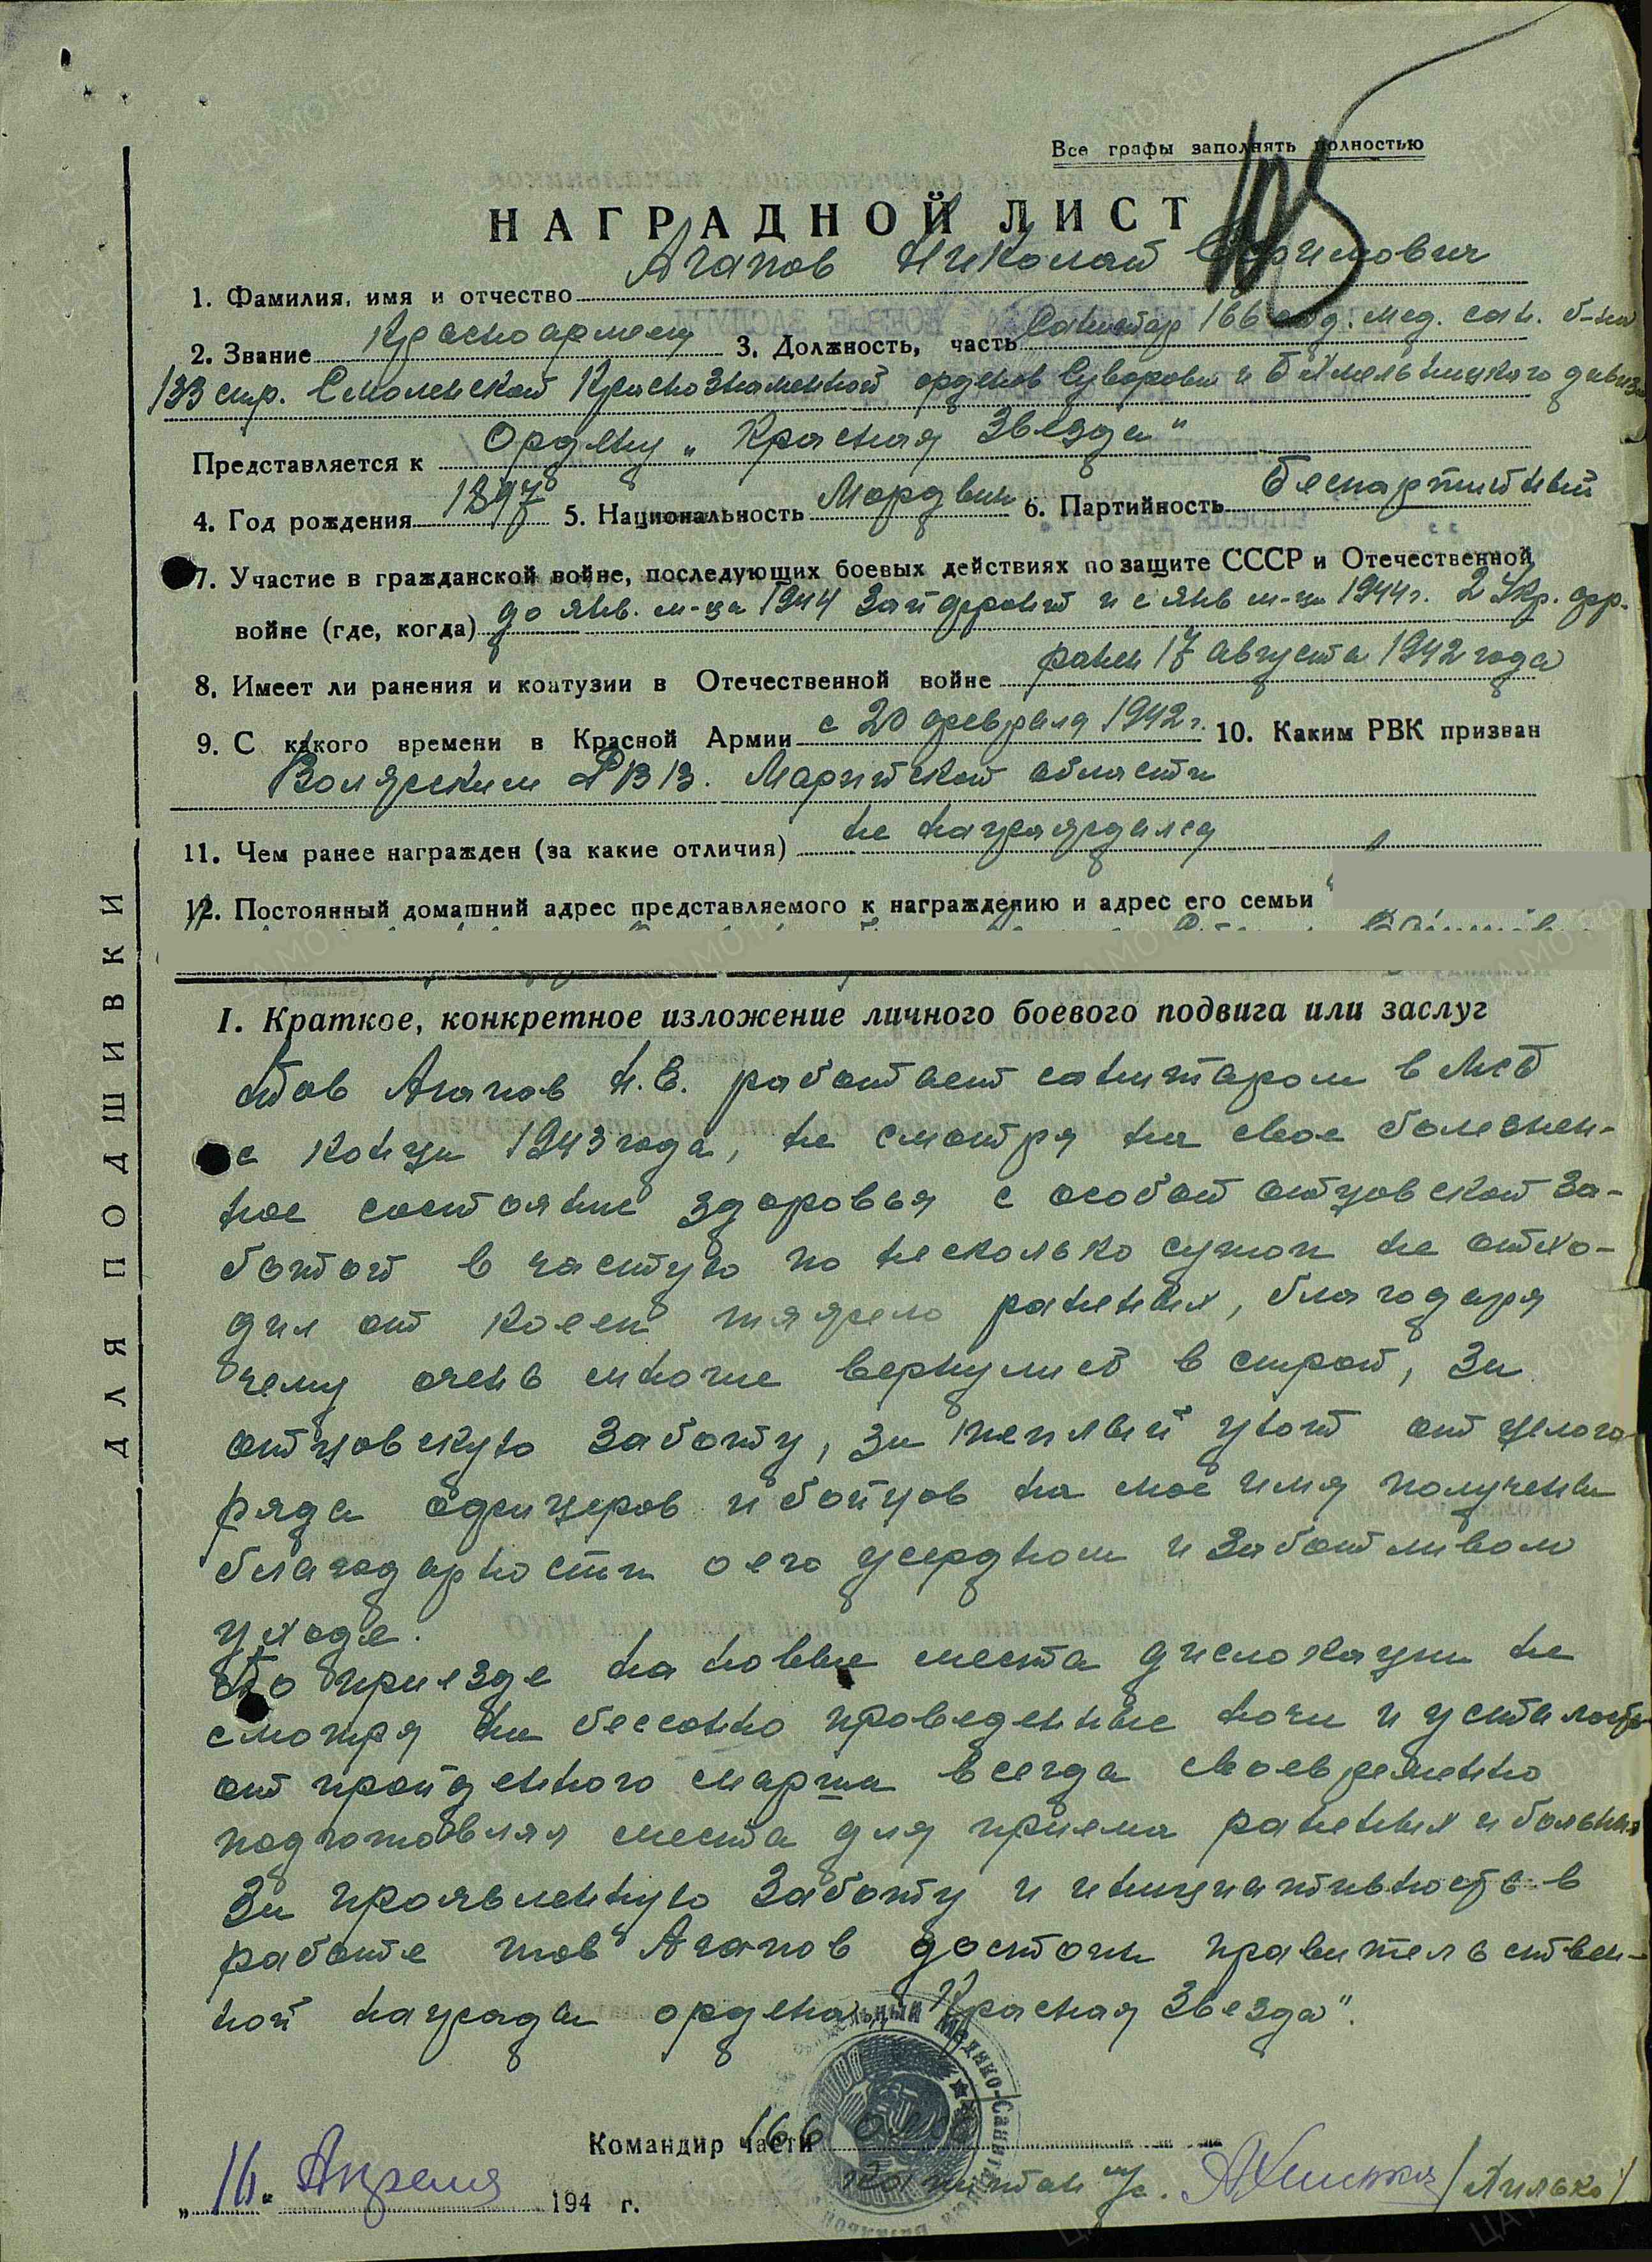 Все графы заполнять полностью
НАГРАДНОЙ ЛИСТ
1. Фамилия, имя и отчество Агапов Николай
2. Звание Красноармеец 3. Должность, часть Санитар 166 отд. мед. сан. б-на
133 стр. Смоленской Краснознаменной орденов Суворова и Б. Хмельницкого дивизи
Представляется к Ордену „Красная Звезда"
4. Год рождения 1897 5. Национальность Мордвин 6. Партийность беспартийный
7. Участие в гражданской войне, последующих боевых действиях по защите СССР и Отечественной
войне (где, когда) до янв. м-ца 1944 Зап фронт и с янв м-ца 1944г. 2 Укр. фр.
8. Имеет ли ранения и контузии в Отечественной войне ранен 17 августа 1942 года
9. С какого времени в Красной Армии с 20 февраля 1942г. 10. Каким РВК призван
Марийской области
11. Чем ранее награжден (за какие отличия) не награждался
12. Постоянный домашний адрес представляемого к награждению и адрес его семьи
ДЛЯ ПОДШИВКИ
I. Краткое, конкретное изложение личного боевого подвига или заслуг
Тов Агапов Н.Е. работает санитаром в МСБ
с конца 1943 года, не смотря на свое болезнен-
ное состояние здоровья с особой отцовской за-
ботой в частую по несколько суток не отхо-
дил от коек тяжело раненых, благодаря
чему очень многие вернулись в строй, За
отцовскую заботу, за теплый уют от целого
ряда офицеров и бойцов на мое имя получены
благодарности о его усердном и заботливом
уходе.
По приезде на новые места дислокации не
смотря на бессонно проведенные ночи и усталость
от пройденного марша всегда своевременно
подготовлял места для приема раненых и больных
За проявленную заботу и инициативность в
работе тов Агапов достоин правительствен-
ной награды ордена „Красная Звезда".
Командир части 166 омсб
капитан м/с. /Хилько/
„16" Апреля 194 г.